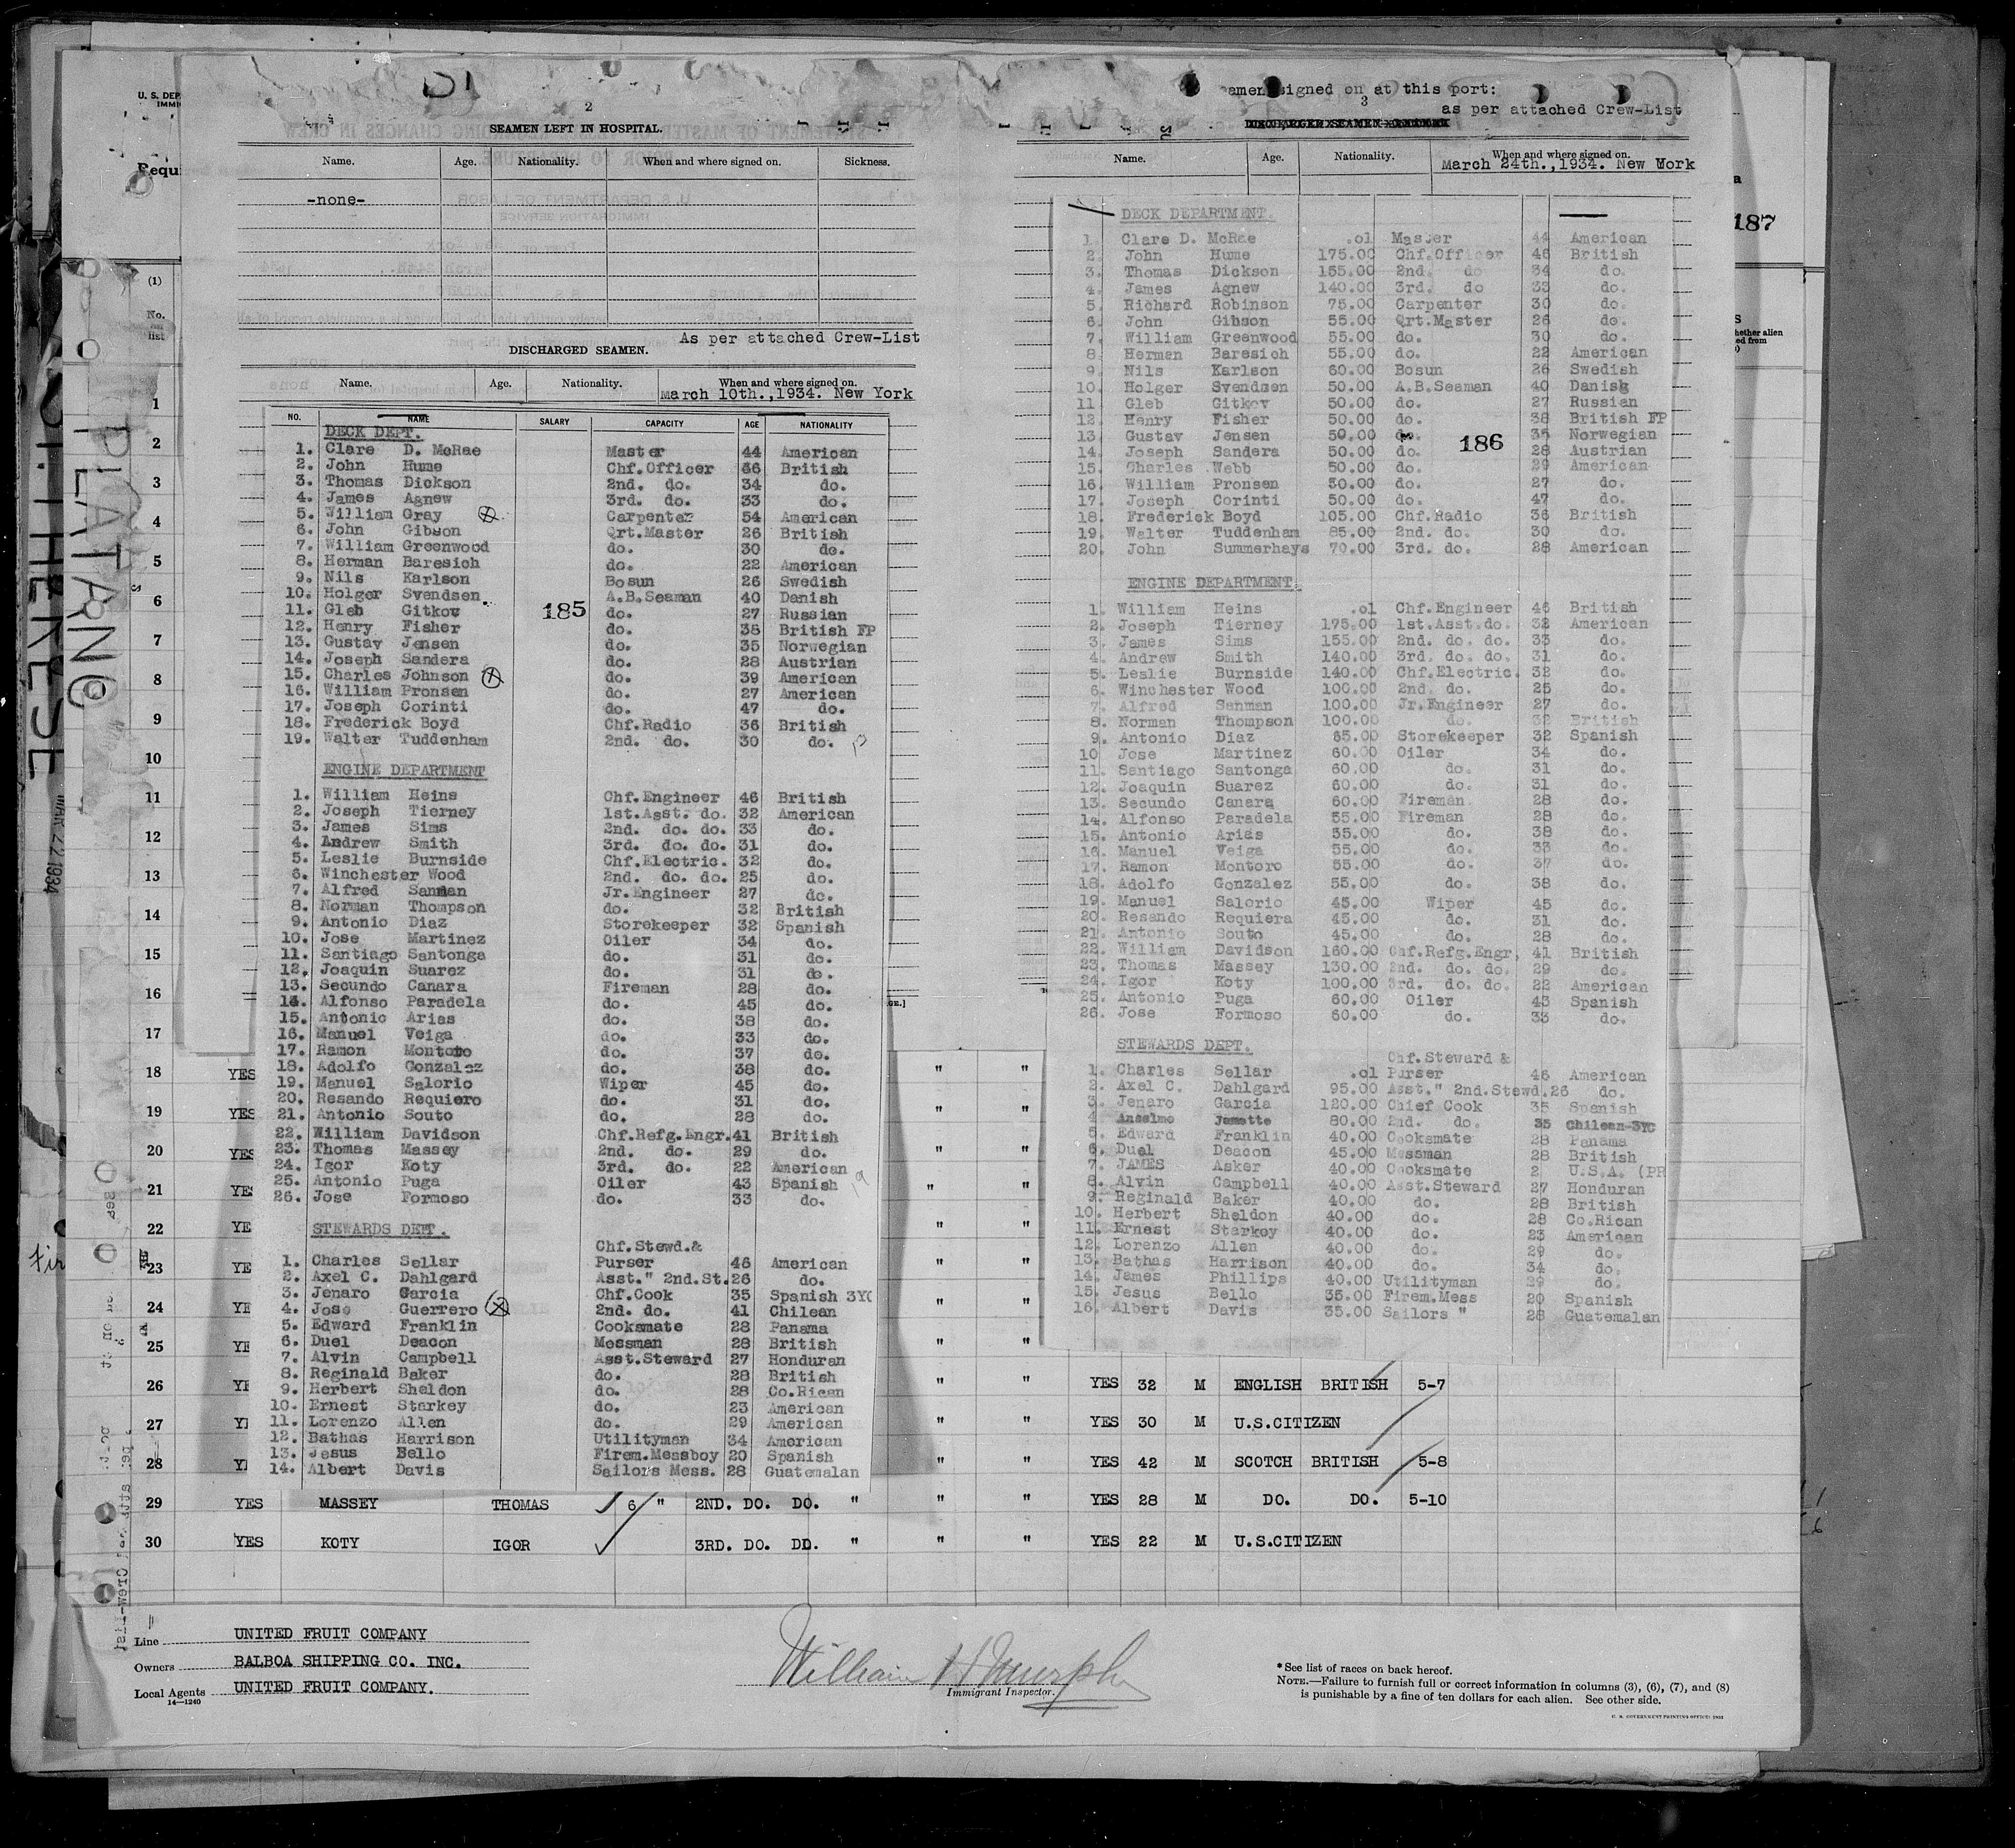 U. S. DEP
IMMI
Requi
(1)
No.
on
list
PLATANO
THERESE
MAR 22 1934
2
SEAMEN LEFT IN HOSPITAL.
Name. Age. Nationality. When and where signed on. Sickness.
-none-
As per attached Crew-List
DISCHARGED SEAMEN.
Name. Age. Nationality. When and where signed on.
March 10th.,1934. New York
NO. NAME SALARY CAPACITY AGE NATIONALITY
DECK DEPT.
1. Clare D. McRae Master 44 American
2. John Hume Chf.Officer 36 British
3. Thomas Dickson 2nd. do. 34 do.
4. James Agnew 3rd. do. 33 do.
5. William Gray Carpenter 54 American
6. John Gibson Qrt.Master 26 British
7. William Greenwood do. 30 do.
8. Herman Baresich do. 22 American
9. Nils Karlson Bosun 26 Swedish
10. Holger Svendsen A.B.Seaman 40 Danish
11. Gleb Gitkov 185 do. 27 Russian
12. Henry Fisher do. 38 British FP
13. Gustav Jensen do. 35 Norwegian
14. Joseph Sandera do. 28 Austrian
15. Charles Johnson do. 39 American
16. William Pronsen do. 27 American
17. Joseph Corinti do. 47 do.
18. Frederick Boyd Chf.Radio 36 British
19. Walter Tuddenham 2nd. do. 30 do.
ENGINE DEPARTMENT
1. William Heins Chf.Engineer 46 British
2. Joseph Tierney 1st.Asst. do. 32 American
3. James Sims 2nd. do. do. 33 do.
4. Andrew Smith 3rd. do. do. 31 do.
5. Leslie Burnside Chf.Electric. 32 do.
6. Winchester Wood 2nd. do. do. 25 do.
7. Alfred Sanman Jr.Engineer 27 do.
8. Norman Thompson do. 32 British
9. Antonio Diaz Storekeeper 32 Spanish
10. Jose Martinez Oiler 34 do.
11. Santiago Santonga do. 31 do.
12. Joaquin Suarez do. 31 do.
13. Secundo Canara Fireman 28 do.
14. Alfonso Paradela do. 45 do.
15. Antonio Arias do. 38 do.
16. Manuel Veiga do. 33 do.
17. Ramon Montoto do. 37 do.
18. Adolfo Gonzalez do. 38 do.
19. Manuel Salorio Wiper 45 do.
20. Resando Requiero do. 31 do.
21. Antonio Souto do. 28 do.
22. William Davidson Chf.Refg.Engr. 41 British
23. Thomas Massey 2nd. do. 29 do.
24. Igor Koty 3rd. do. 22 American
25. Antonio Puga Oiler 43 Spanish
26. Jose Formoso do. 33 do.
19
STEWARDS DEPT.
Chf.Stewd.&
1. Charles Sellar Purser 46 American
2. Axel C. Dahlgard Asst." 2nd.St. 26 do.
3. Jenaro Garcia Chf.Cook 35 Spanish 3YC
4. Jose Guerrero 2nd. do. 41 Chilean
5. Edward Franklin Cooksmate 28 Panama
6. Duel Deacon Messman 28 British
7. Alvin Campbell Asst.Steward 27 Honduran
8. Reginald Baker do. 28 British
9. Herbert Sheldon do. 28 Co.Rican
10. Ernest Starkey do. 23 American
11. Lorenzo Allen do. 29 American
12. Bathas Harrison Utilityman 34 American
13. Jesus Bello Firem.Messboy 20 Spanish
14. Albert Davis Sailors Mess. 28 Guatemalan
Seamen signed on at this port:
3
as per attached Crew-List
Name. Age. Nationality. When and where signed on.
March 24th.,1934. New York
DECK DEPARTMENT.
1. Clare D. McRae .01 Master 44 American
2. John Hume 175.00 Chf.Officer 46 British
3. Thomas Dickson 155.00 2nd. do 34 do.
4. James Agnew 140.00 3rd. do 33 do.
5. Richard Robinson 75.00 Carpenter 30 do.
6. John Gibson 55.00 Qrt.Master 26 do.
7. William Greenwood 55.00 do. 30 do.
8. Herman Baresich 55.00 do. 22 American
9. Nils Karlson 60.00 Bosun 26 Swedish
10. Holger Svendsen 50.00 A.B.Seaman 40 Danish
11 Gleb Gitkov 50.00 do. 27 Russian
12. Henry Fisher 50.00 do. 38 British FP
13. Gustav Jensen 50.00 do. 186 35 Norwegian
14. Joseph Sandera 50.00 do. 28 Austrian
15. Charles Webb 50.00 do. 29 American
16. William Pronsen 50.00 do. 27 do.
17. Joseph Corinti 50.00 do. 47 do.
18. Frederick Boyd 105.00 Chf.Radio 36 British
19. Walter Tuddenham 85.00 2nd. do. 30 do.
20. John Summerhays 70.00 3rd. do. 28 American
ENGINE DEPARTMENT.
1. William Heins .01 Chf.Engineer 46 British
2. Joseph Tierney 175.00 1st.Asst.do. 32 American
3. James Sims 155.00 2nd. do. do. 33 do.
4. Andrew Smith 140.00 3rd. do. do. 31 do.
5. Leslie Burnside 140.00 Chf.Electric. 32 do.
6. Winchester Wood 100.00 2nd. do. 25 do.
7. Alfred Sanman 100.00 Jr.Engineer 27 do.
8. Norman Thompson 100.00 do. 32 British
9. Antonio Diaz 65.00 Storekeeper 32 Spanish
10 Jose Martinez 60.00 Oiler 34 do.
11. Santiago Santonga 60.00 do. 31 do.
12. Joaquin Suarez 60.00 do. 31 do.
13. Secundo Canara 60.00 Fireman 28 do.
14. Alfonso Paradela 55.00 Fireman 28 do.
15. Antonio Arias 55.00 do. 38 do.
16. Manuel Veiga 55.00 do. 33 do.
17. Ramon Montoro 55.00 do. 37 do.
18. Adolfo Gonzalez 55.00 do. 38 do.
19. Manuel Salorio 45.00 Wiper 45 do.
20. Resando Requiera 45.00 do. 31 do.
21. Antonio Souto 45.00 do. 28 do.
22. William Davidson 160.00 Chf.Refg.Engr, 41 British
23. Thomas Massey 130.00 2nd. do. do. 29 do.
24. Igor Koty 100.00 3rd. do. do. 22 American
25. Antonio Puga 60.00 Oiler 43 Spanish
26. Jose Formoso 60.00 do. 33 do.
STEWARDS DEPT.
Chf.Steward &
1. Charles Sellar .01 Purser 46 American
2. Axel C. Dahlgard 95.00 Asst." 2nd.Stewd. 26 do.
3. Jenaro Garcia 120.00 Chief Cook 35 Spanish
4 Anselmo Jamette 80.00 2nd. do. 35 Chilean-3YC
5. Edward Franklin 40.00 Cooksmate 28 Panama
6. Duel Deacon 45.00 Messman 28 British
7. JAMES Asker 40.00 Cooksmate 2 U.S.A. (PR
8. Alvin Campbell 40.00 Asst.Steward 27 Honduran
9. Reginald Baker 40.00 do. 28 British
10. Herbert Sheldon 40.00 do. 28 Co.Rican
11. Ernest Starkey 40.00 do. 23 American
12. Lorenzo Allen 40.00 do. 29 do.
13. Bathas Harrison 40.00 do. 34 do.
14. James Phillips 40.00 Utilityman 29 do.
15. Jesus Bello 35.00 Firem.Mess 20 Spanish
16. Albert Davis 35.00 Sailors " 28 Guatemalan
187
1
2
3
4
5
6
7
8
9
10
11
12
13
14
15
16
17
18 YES " "
19 YES " "
20 YES " "
21 YE " "
22 YE " "
23 YE " "
24 YE " "
25 YE " "
26 YE " " YES 32 M ENGLISH BRITISH 5-7
27 Y " " YES 30 M U.S.CITIZEN
28 Y " " YES 42 M SCOTCH BRITISH 5-8
29 YES MASSEY THOMAS 6 " 2ND. DO. DO. " " " YES 28 M DO. DO. 5-10
30 YES KOTY IGOR 3RD. DO. DO. " " " YES 22 M U.S.CITIZEN
Line UNITED FRUIT COMPANY
Owners BALBOA SHIPPING CO. INC.
Local Agents UNITED FRUIT COMPANY.
14—1240
William H Murphy
Immigrant Inspector.
* See list of races on back hereof.
NOTE.—Failure to furnish full or correct information in columns (3), (6), (7), and (8)
is punishable by a fine of ten dollars for each alien. See other side.
U. S. GOVERNMENT PRINTING OFFICE: 1932